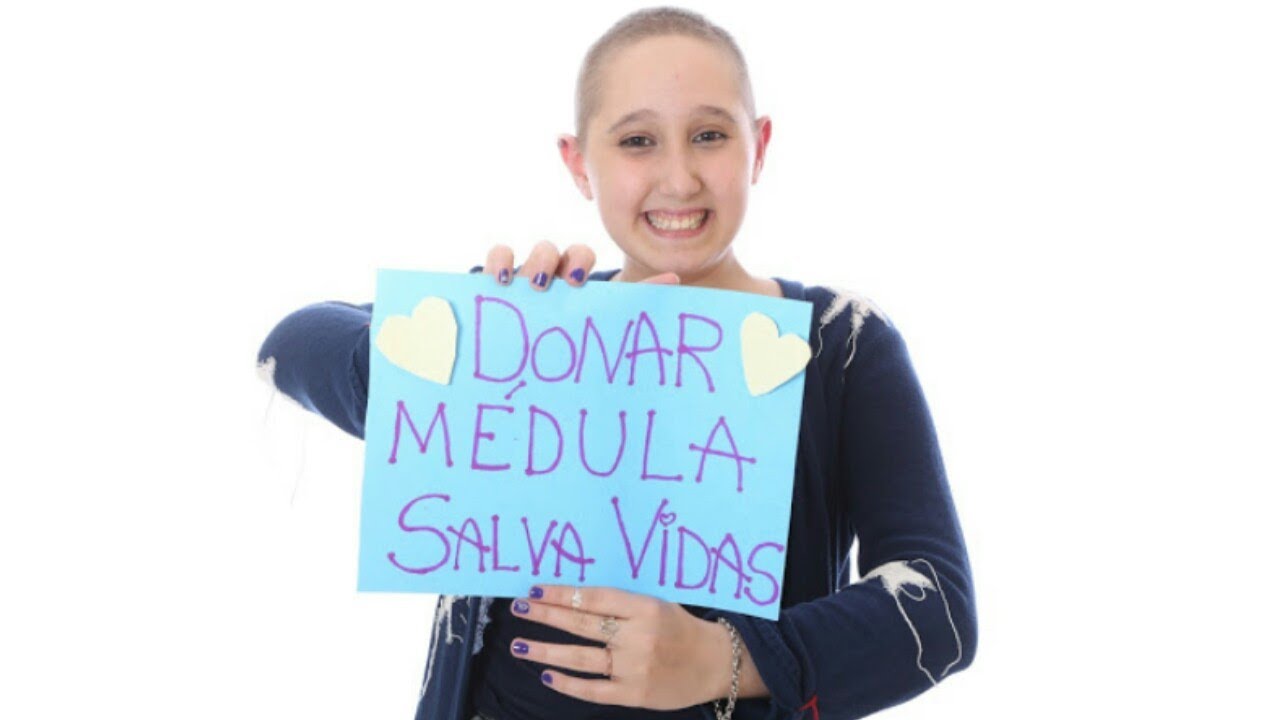 DONAR
MÉDULA
SALVA VIDAS